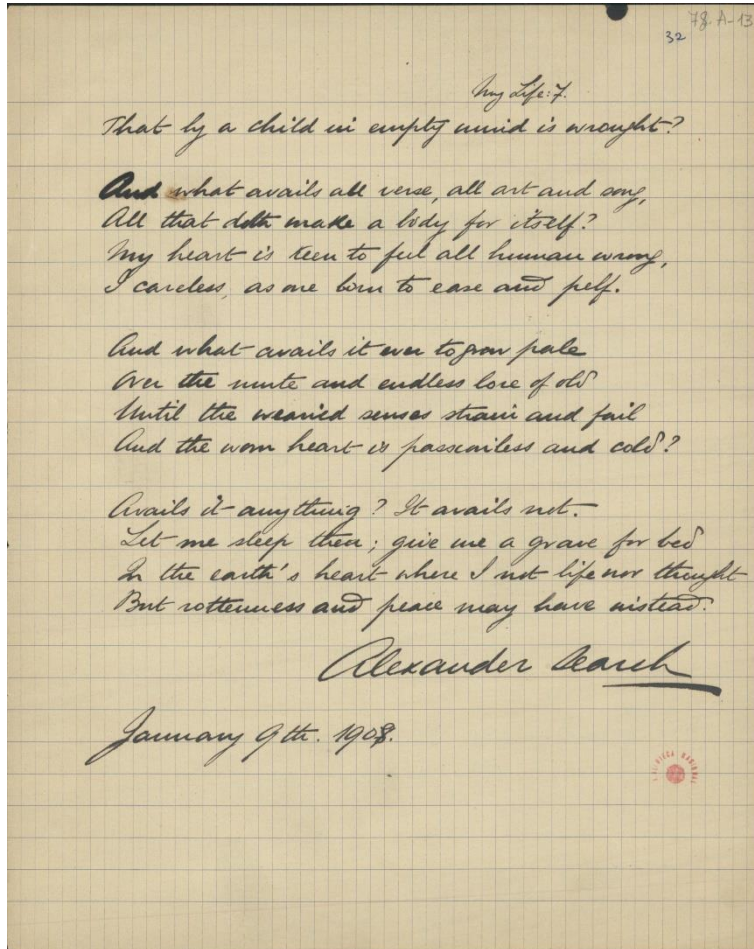 78. A-13
32
My Life: 7.
That by a child in empty mind is wrought?
And what avails all verse, all art and song,
All that doth make a body for itself?
My heart is keen to feel all human wrong,
I careless, as one born to ease and pelf.
And what avails it ever to grow pale
Over the mute and endless lore of old
Until the wearied senses strain and fail
And the worn heart is passionless and cold?
Avails it anything? It avails not.
Let me sleep then; give me a grave for bed
In the earth's heart where I not life nor thought
But rottenness and peace may have instead.
Alexander Search
January 9th. 1908.